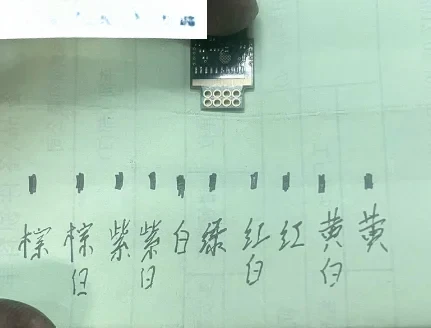 棕 棕白 紫 紫白 白 绿 红白 红 黄白 黄